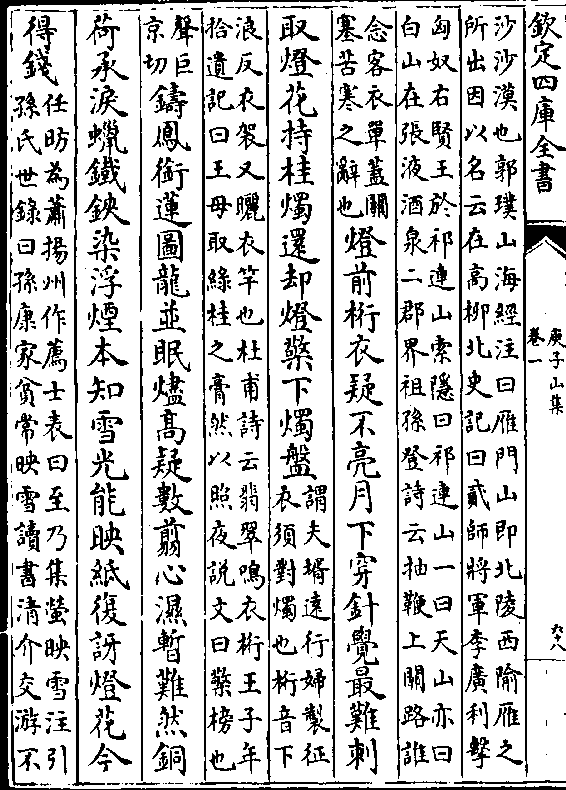 欽定四庫全書
庾子山集
卷一
六十八
沙沙漠也郭璞山海經注曰雁門山即北陵西隃雁之
所出因以名云在高柳北史記曰貳師將軍李廣利擊
匈奴右賢王於祁連山索隱曰祁連山一曰天山亦曰
白山在張液酒泉二郡界祖孫登詩云抽鞭上關路誰
念客衣單蓋關
塞苦寒之辭也
燈前桁衣疑不亮月下穿針覺最難刺
取燈花持桂燭還却燈檠下燭盤
謂夫壻逺行婦製征
衣須對燭也桁音下
浪反衣架又曬衣竿也杜甫詩云翡翠鳴衣桁王子年
拾遺記曰王母取綠桂之膏然以照夜説文曰檠榜也
聲巨
京切
鑄鳳銜蓮圖龍並眠燼高疑數翦心濕暫難然銅
荷承淚蠟鐵鋏染浮煙本知雪光能映紙復訝燈花今
得錢
任昉為蕭揚州作薦士表曰至乃集螢映雪注引
孫氏世錄曰孫康家貧常映雪讀書清介交游不